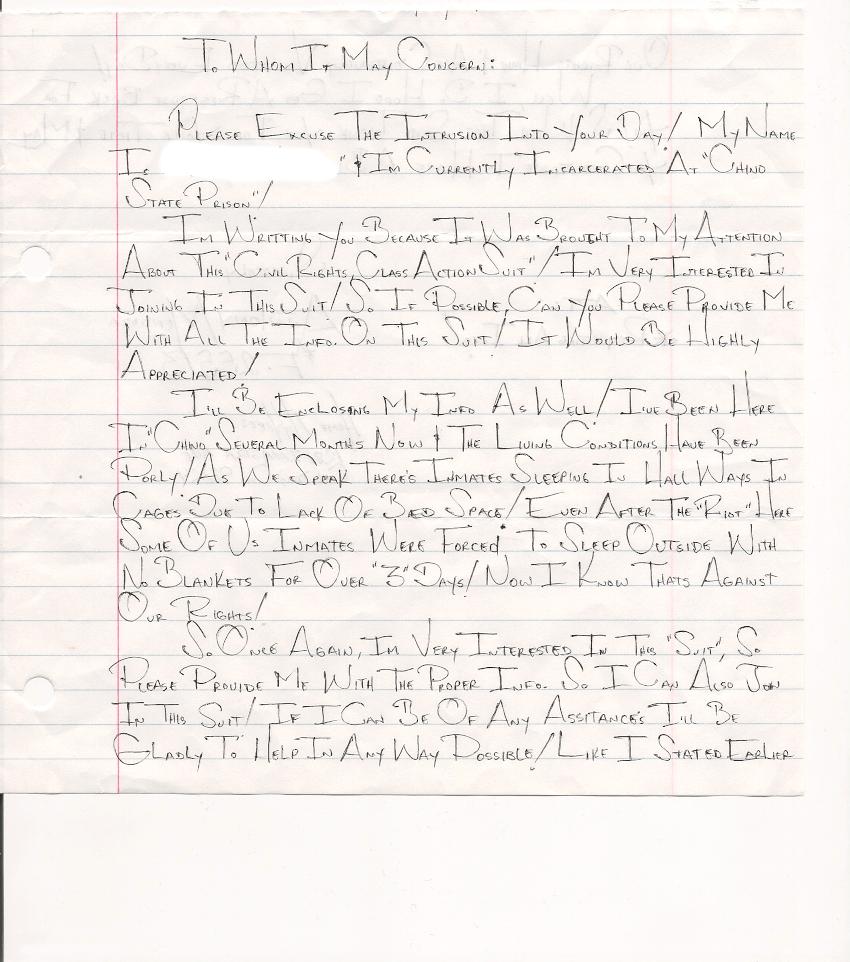 To Whom It May Concern:
Please Excuse The Intrusion Into Your Day/ My Name
Is " & Im Currently Incarcerated At "Chino
State Prison"/
Im Writting You Because It Was Brought To My Attention
About This "Civil Rights, Class Action Suit"/ Im Very Interested In
Joining In This Suit/ So If Possible, Can You Please Provide Me
With All The Info. On This Suit/ It Would Be Highly
Appreciated/
I'll Be Enclosing My Info As Well/ I've Been Here
In "Chino" Several Months Now & The Living Conditions Have Been
Porly/ As We Speak There's Inmates Sleeping In Hall Ways In
Cages Due To Lack Of Bed Space/ Even After The "Riot" Here
Some Of Us Inmates Were Forced To Sleep Outside With
No Blankets For Over "3" Days/ Now I Know Thats Against
Our Rights/
So Once Again, Im Very Interested In This "Suit", So
Please Provide Me With The Proper Info. So I Can Also Join
In This Suit/ If I Can Be Of Any Assitance's I'll Be
Gladly To Help In Any Way Possible/ Like I Stated Earlier